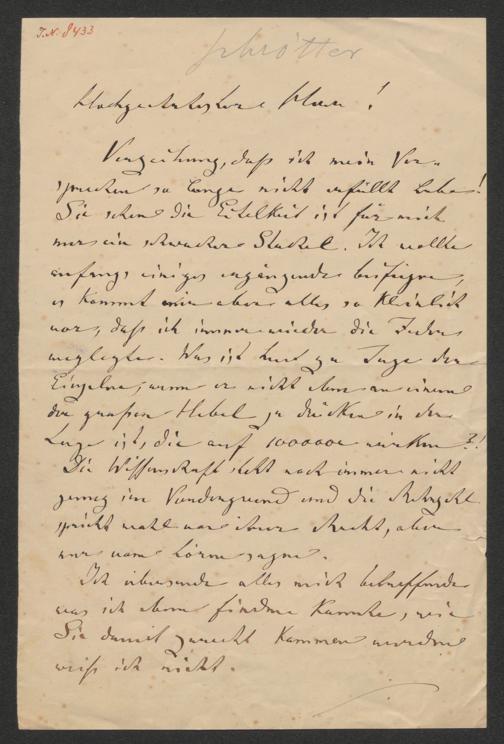 J.N. 8433
Schrötter
Hochgeehrtester Herr!
Verzeihung, daß ich mein Ver-
sprechen so lange nicht erfüllt habe!
Sie sehen die Eitelkeit ist für mich
nur ein schwacher Stachel. Ich wollte
anfangs einiges ergänzende beifügen,
es kommt mir aber alles so kleinlich
vor, daß ich immer wieder die Feder
weglegte. Was ist heut zu Tage der
Einzelne, wenn er nicht eben an einem
der großen Hebel zu drücken in der
Lage ist, die auf 1000000 wirken?!
Die Wissenschaft steht noch immer nicht
genug im Vordergrund und die
spricht wohl von ihrer Macht, aber
nur vom hören sagen.
Ich übersende alles mich betreffende
was ich eben finden konnte, wie
Sie damit zurecht kommen werden
weiß ich nicht.